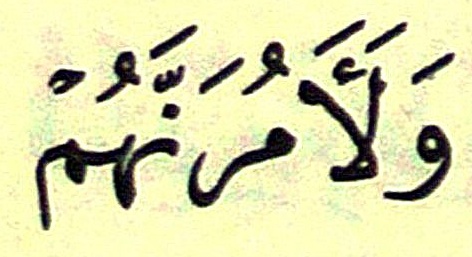 وَلَأَمُرَنَّهُمْ